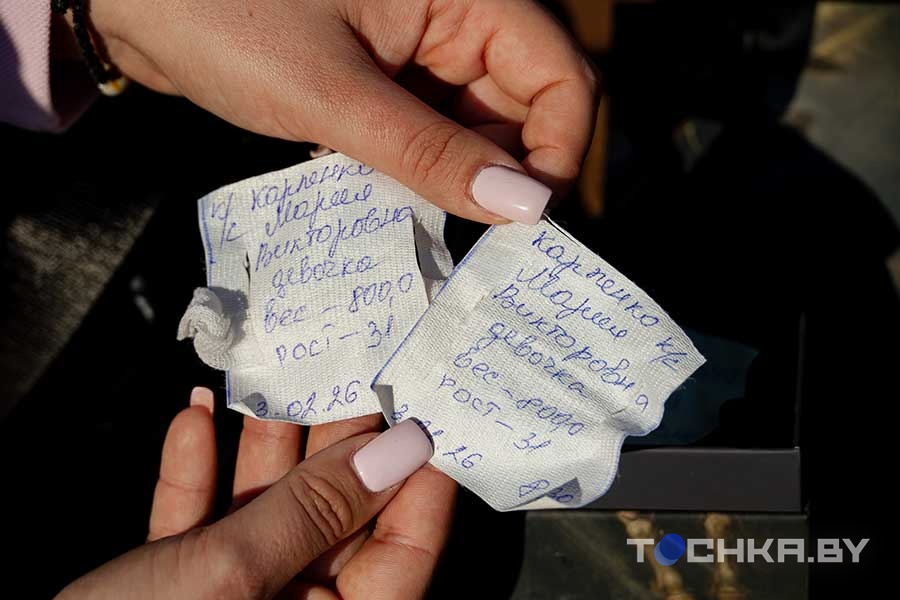 к/с Карпенко
Мария
Викторовна
девочка
вес – 800,0
рост – 31
3.02.26
Карпенко
Мария к/с
Викторовна
девочка
вес – 800,0
рост – 31
26
TOCHKA.BY